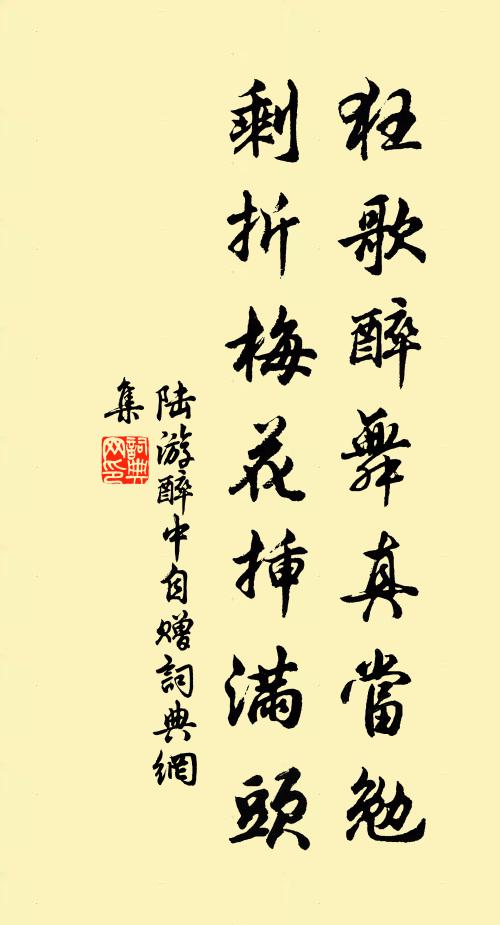 狂歌醉舞真當勉
剩折梅花插滿頭
陆游醉中自赠詞典網
集
詞典網印